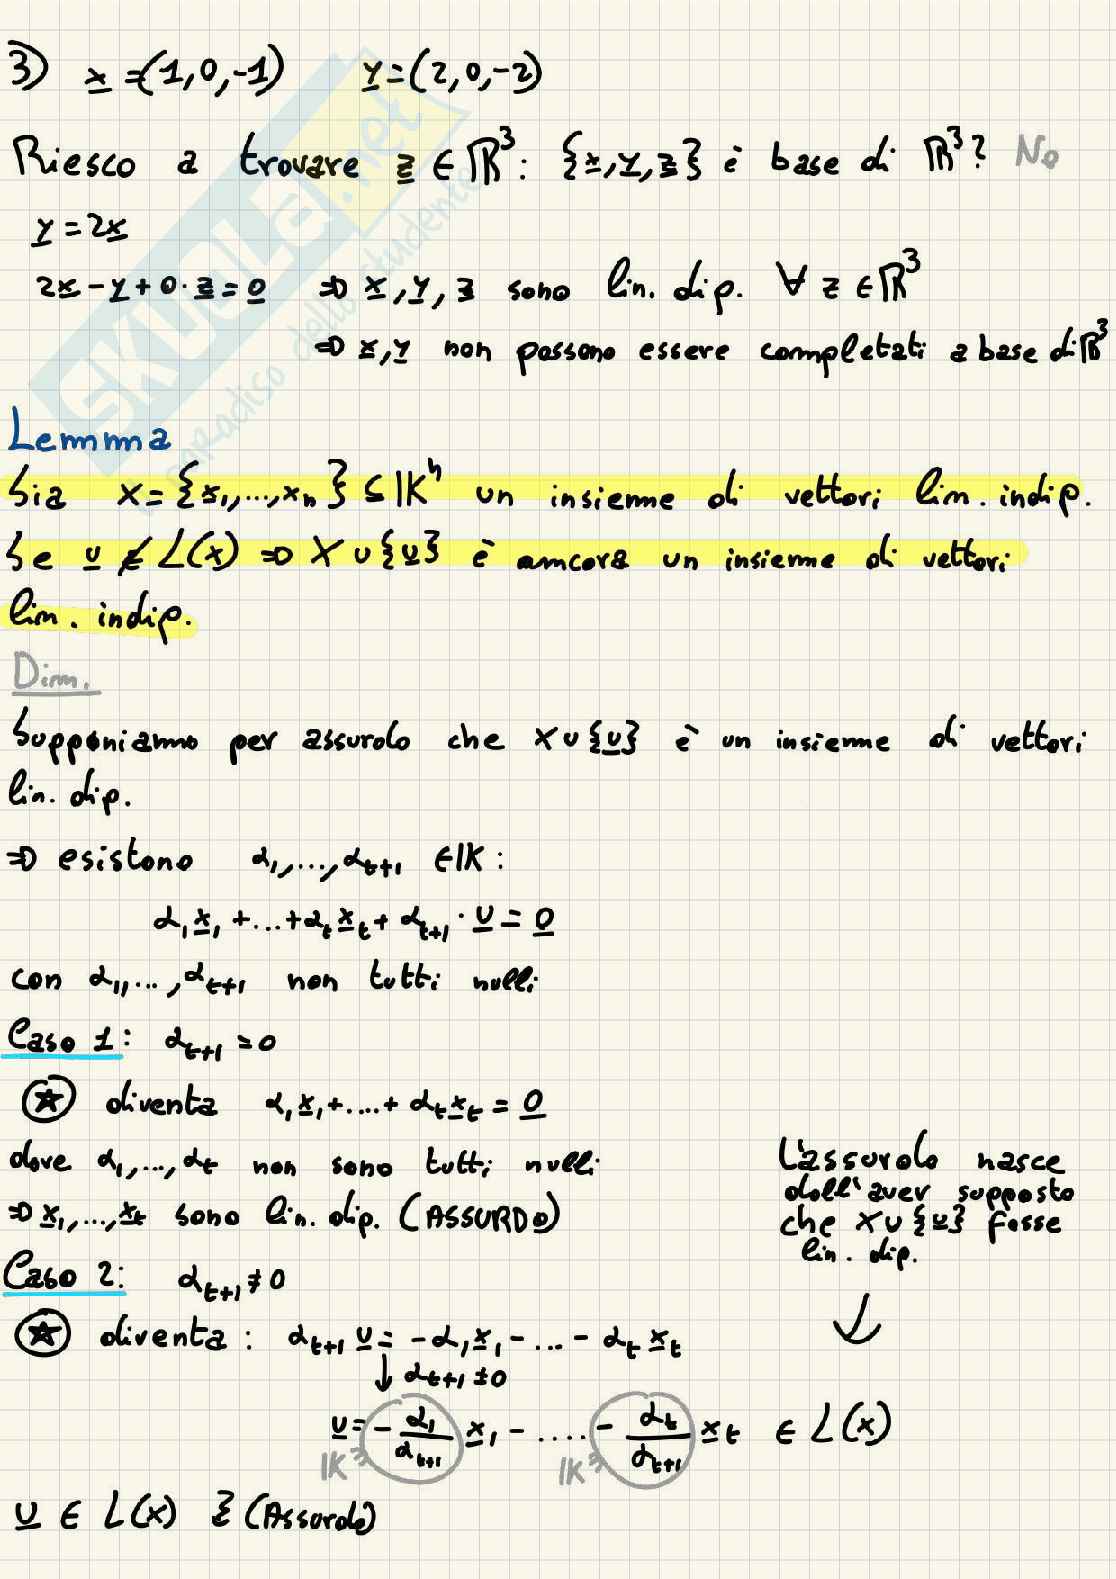 3) x=(1,0,-1) y=(2,0,-2)
Riesco a trovare z ∈ ℝ³: {x,y,z} è base di ℝ³? No
y = 2x
2x-y+0·z=0 ⇒ x,y,z sono lin. dip. ∀ z ∈ ℝ³
⇒ x,y non possono essere completati a base di ℝ³
SKUOLA.net
paradiso dello studente
Lemma
Sia X={x₁,...,xₙ} ⊆ 𝕂ⁿ un insieme di vettori lin. indip.
Se u ∉ L(x) ⇒ X ∪ {u} è ancora un insieme di vettori
lin. indip.
Dim.
Supponiamo per assurdo che X∪{u} è un insieme di vettori
lin. dip.
⇒ esistono α₁,...,αₜ₊₁ ∈ 𝕂:
α₁x₁+...+αₜxₜ+αₜ₊₁·u=0
con α₁,...,αₜ₊₁ non tutti nulli
Caso 1: αₜ₊₁=0
⍟ diventa α₁x₁+....+αₜxₜ=0
dove α₁,...,αₜ non sono tutti nulli
⇒ x₁,...,xₜ sono lin. dip. (ASSURDO)
L'assurdo nasce
dall'aver supposto
che X∪{u} fosse
lin. dip.
↓
Caso 2: αₜ₊₁≠0
⍟ diventa: αₜ₊₁ u=-α₁x₁-...-αₜxₜ
↓ αₜ₊₁≠0
u=-α₁/αₜ₊₁ x₁-....-αₜ/αₜ₊₁ xₜ ∈ L(x)
𝕂∋ 𝕂∋
u ∈ L(x) (Assurdo)